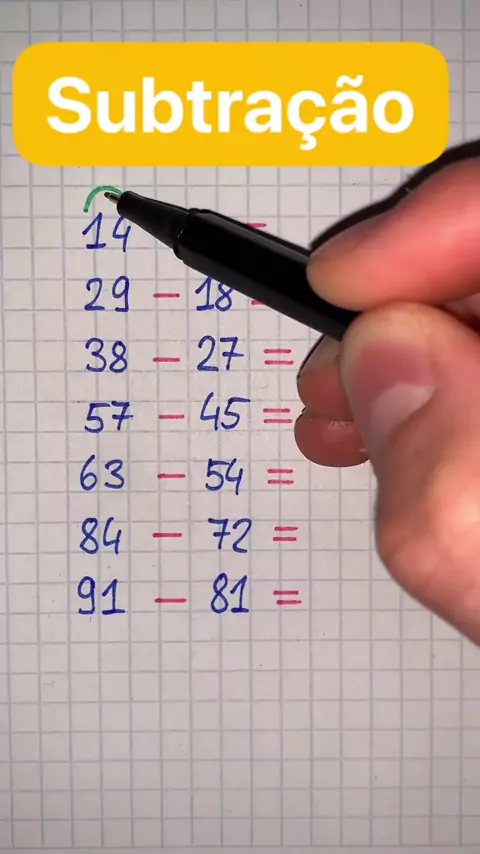 Subtração
14 =
29 - 18 =
38 - 27 =
57 - 45 =
63 - 54 =
84 - 72 =
91 - 81 =